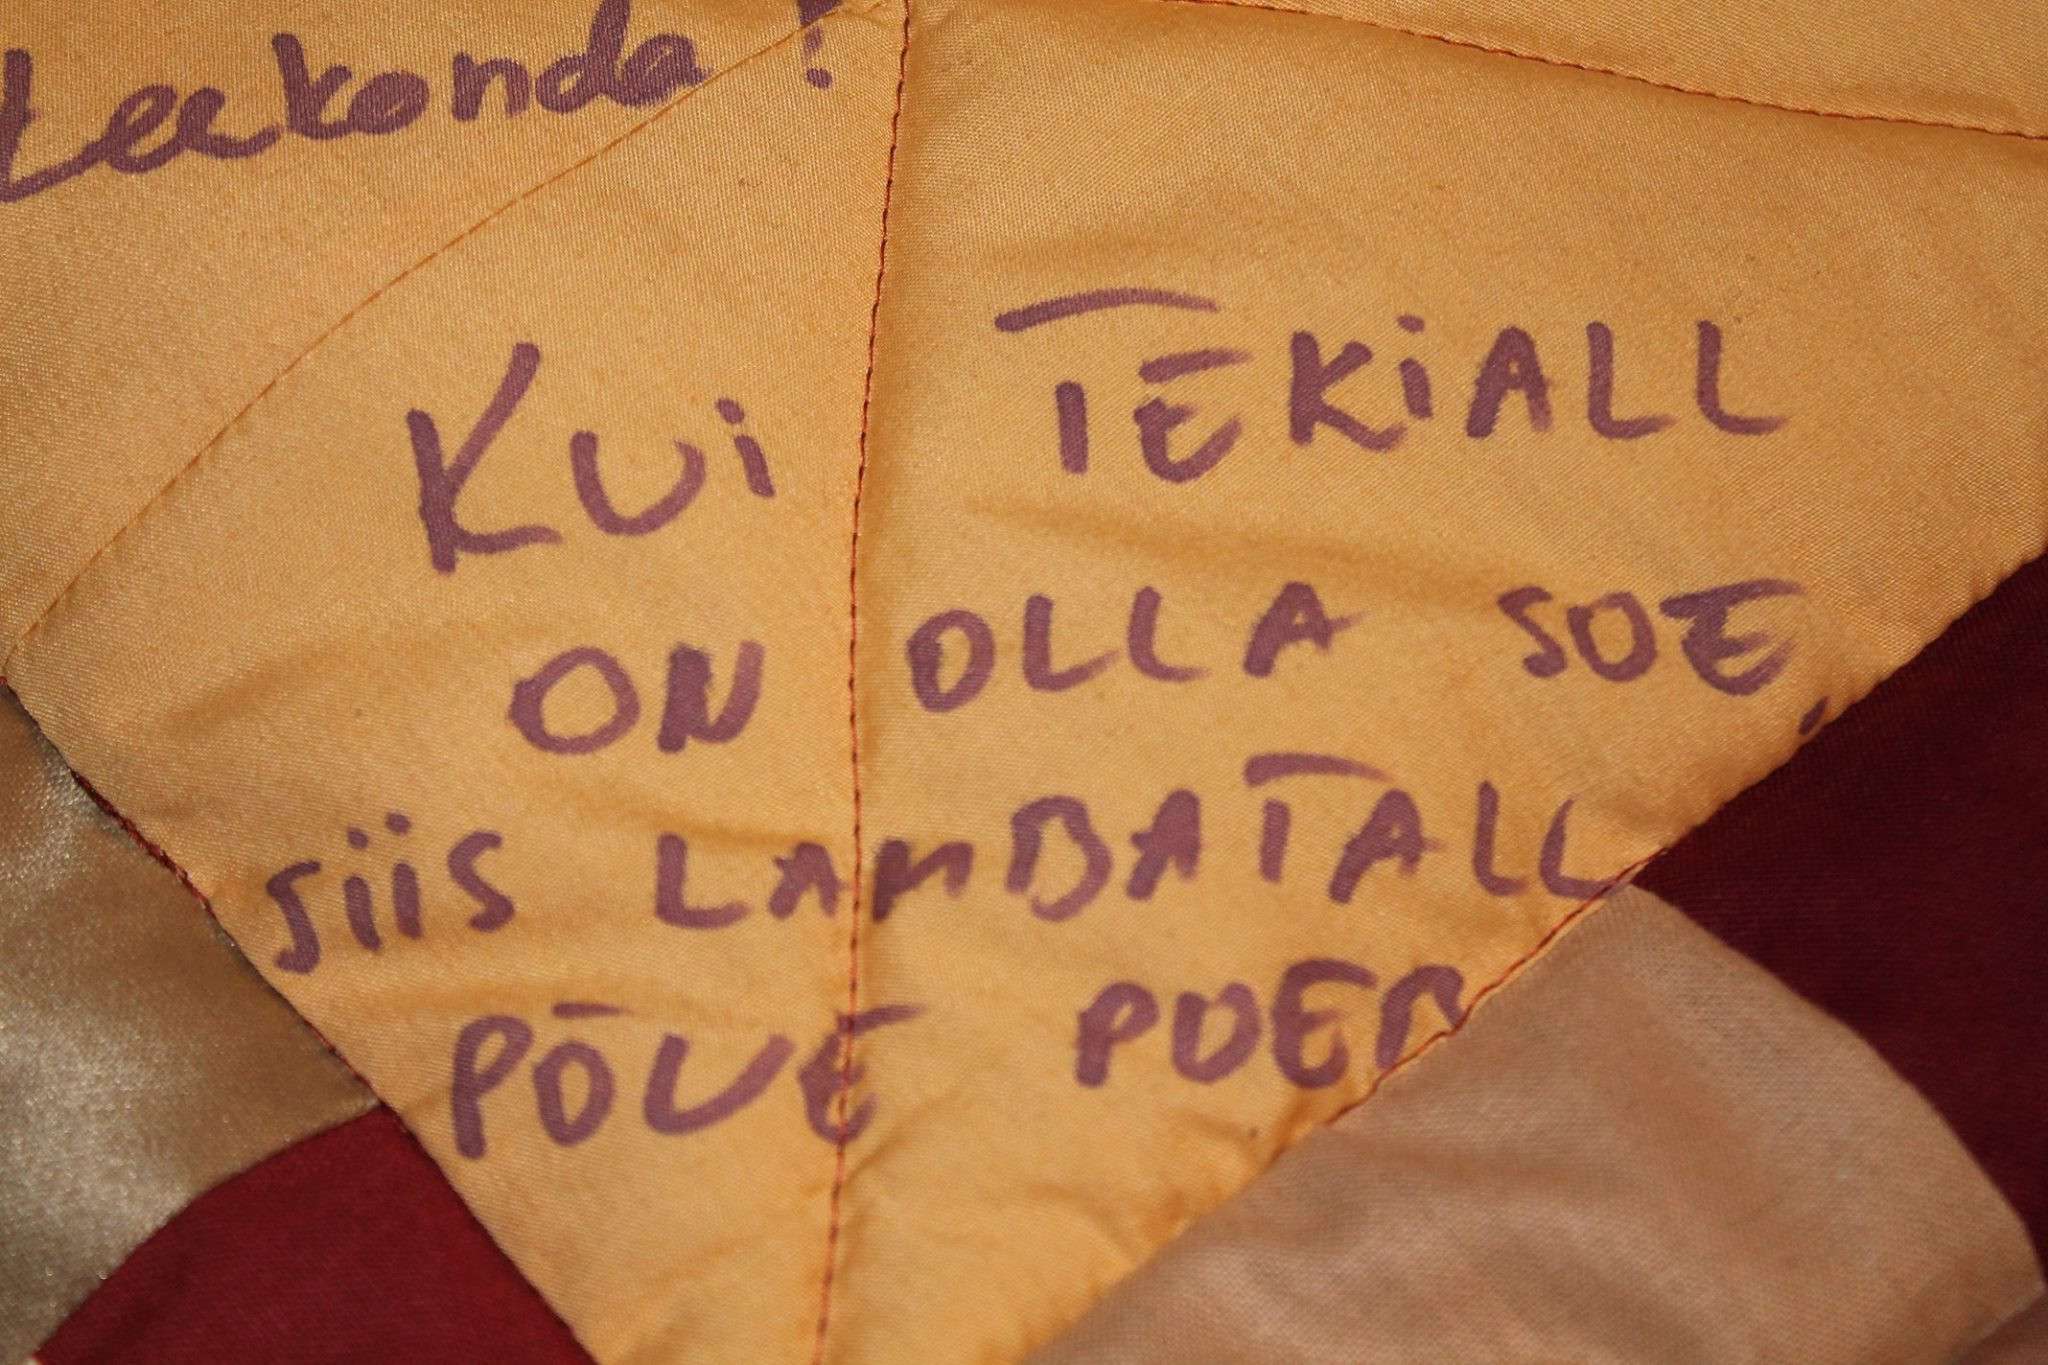 Leekonda!
KUi TEKiALL
ON OLLA SOE,
SiiS LAMBATALL
PÕUE POEN